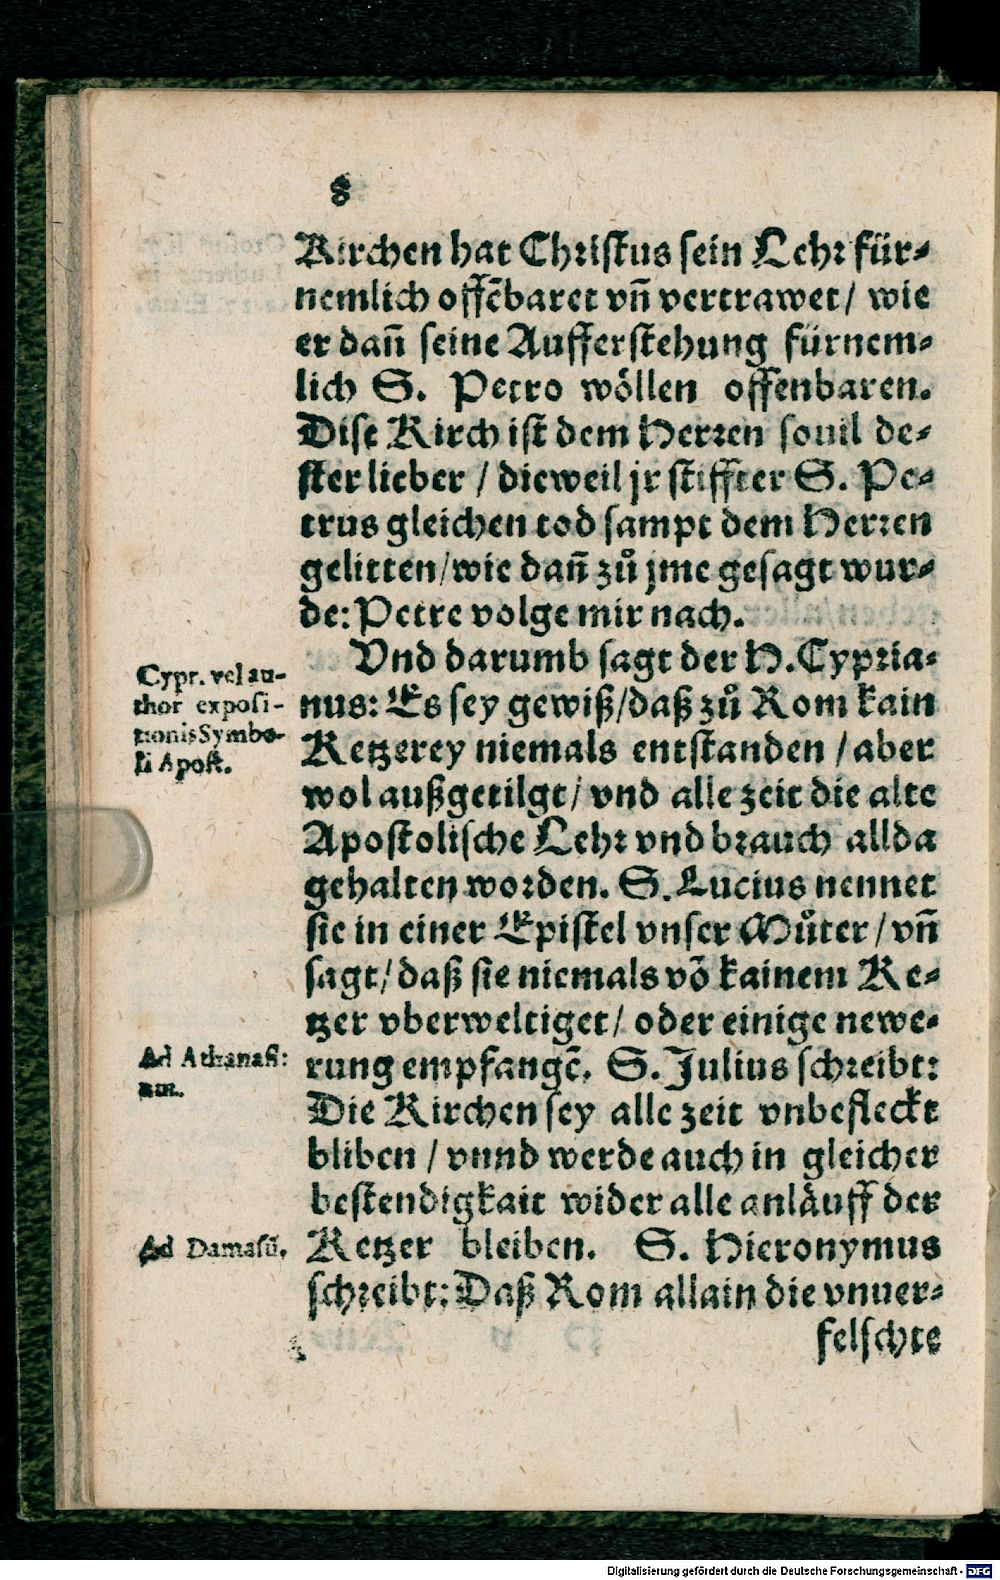 8
Kirchen hat Christus sein Lehr für⸗
nemlich offēbaret vn̄ vertrawet/ wie
er dañ seine Aufferstehung fürnem⸗
lich S. Petro wöllen offenbaren.
Dise Kirch ist dem Herren souil de⸗
ster lieber / dieweil jr stiffter S. Pe⸗
trus gleichen tod sampt dem Herren
gelitten/wie dañ zů jme gesagt wur⸗
de: Petre volge mir nach.
Vnd darumb sagt der H. Cypria⸗
nus: Es sey gewiß/daß zů Rom kain
Ketzerey niemals entstanden / aber
wol außgetilgt/ vnd alle zeit die alte
Apostolische Lehr vnd brauch allda
gehalten worden. S. Lucius nennet
sie in einer Epistel vnser Můter / vn̄
sagt/ daß sie niemals võ kainem Ke⸗
tzer vberweltiget/ oder einige newe⸗
rung empfangē. S. Julius schreibt:
Die Kirchen sey alle zeit vnbefleckt
bliben / vnnd werde auch in gleicher
bestendigkait wider alle anläuff der
Ketzer bleiben. S. Hieronymus
schreibt: Daß Rom allain die vnuer⸗
felschte
Cypr. vel au-
thor exposi-
tionis Symbo-
li Apost.
Ad Athanasi:
um.
Ad Damasū.
Digitalisierung gefördert durch die Deutsche Forschungsgemeinschaft - DFG